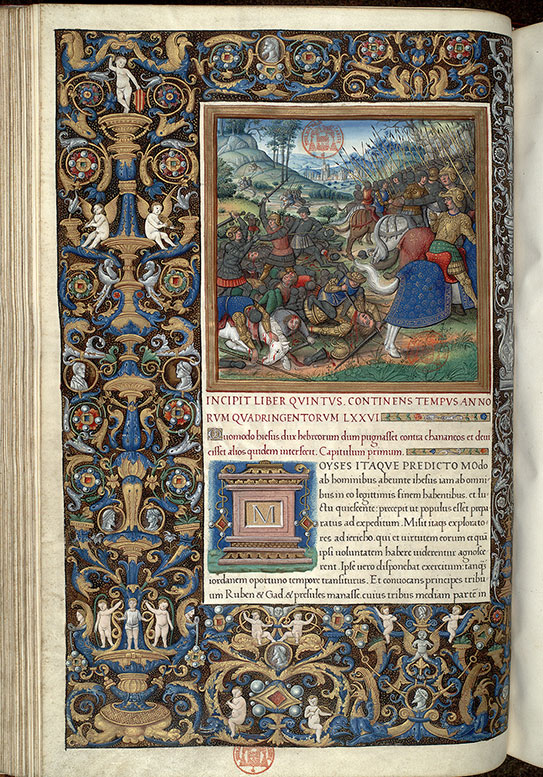 INCIPIT LIBER QVINTVS, CONTINENS TEMPVS ANNO
RVM QVADRINGENTORVM LXXVI
Quomodo hiesus dux hebreorum dum pugnasset contra chananeos et deui
cisset alios quidem interfecit. Capitulum primum.
M
OYSES ITAQVE PREDICTO Modo
ab hominibus abeunte ihesus iam ab omni
bus in eo legittimis finem habentibus, et lu
ctu quiescente: precepit ut populus esset prepa
ratus ad expeditum. Misit itaqs explorato
res ad iericho, qui et uirtutem eorum et quā
ipsi uoluntatem habere uiderentur agnosce
rent. Ipse uero disponebat exercitum: tanqs
iordanem oportuno tempore transiturus. Et conuocans principes tribu
um Ruben & Gad, & presules manasse, cuius tribus mediam parte in